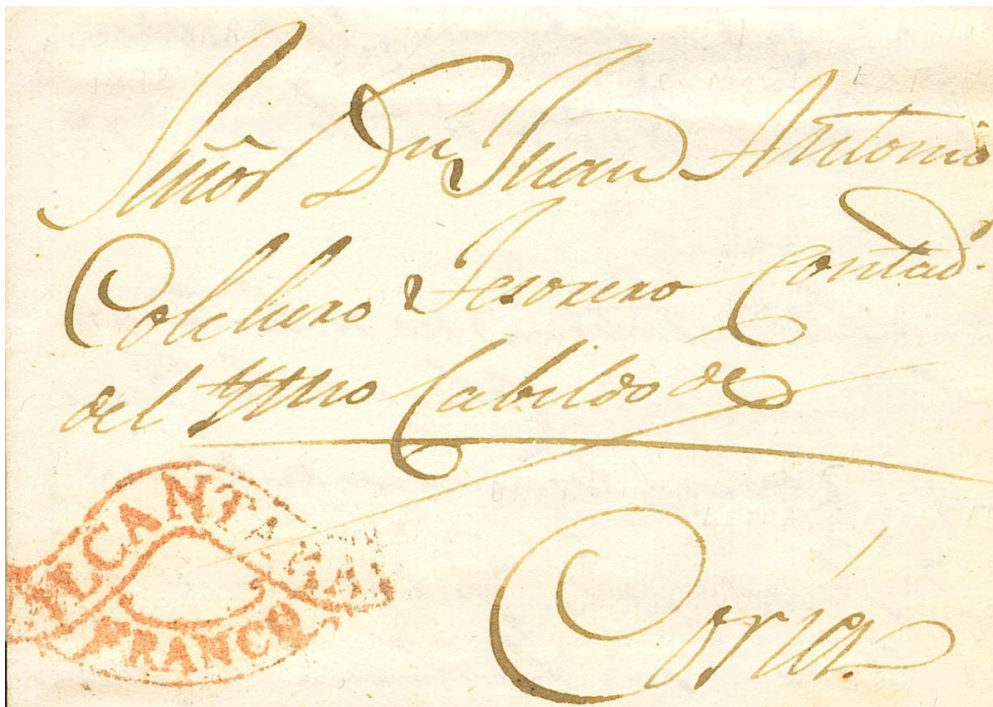 Señor Dn Juan Antonio
Colchero Tesorero Contad.or
del Yllmo Cabildo de
Coria.
ALCANTARA
FRANCO